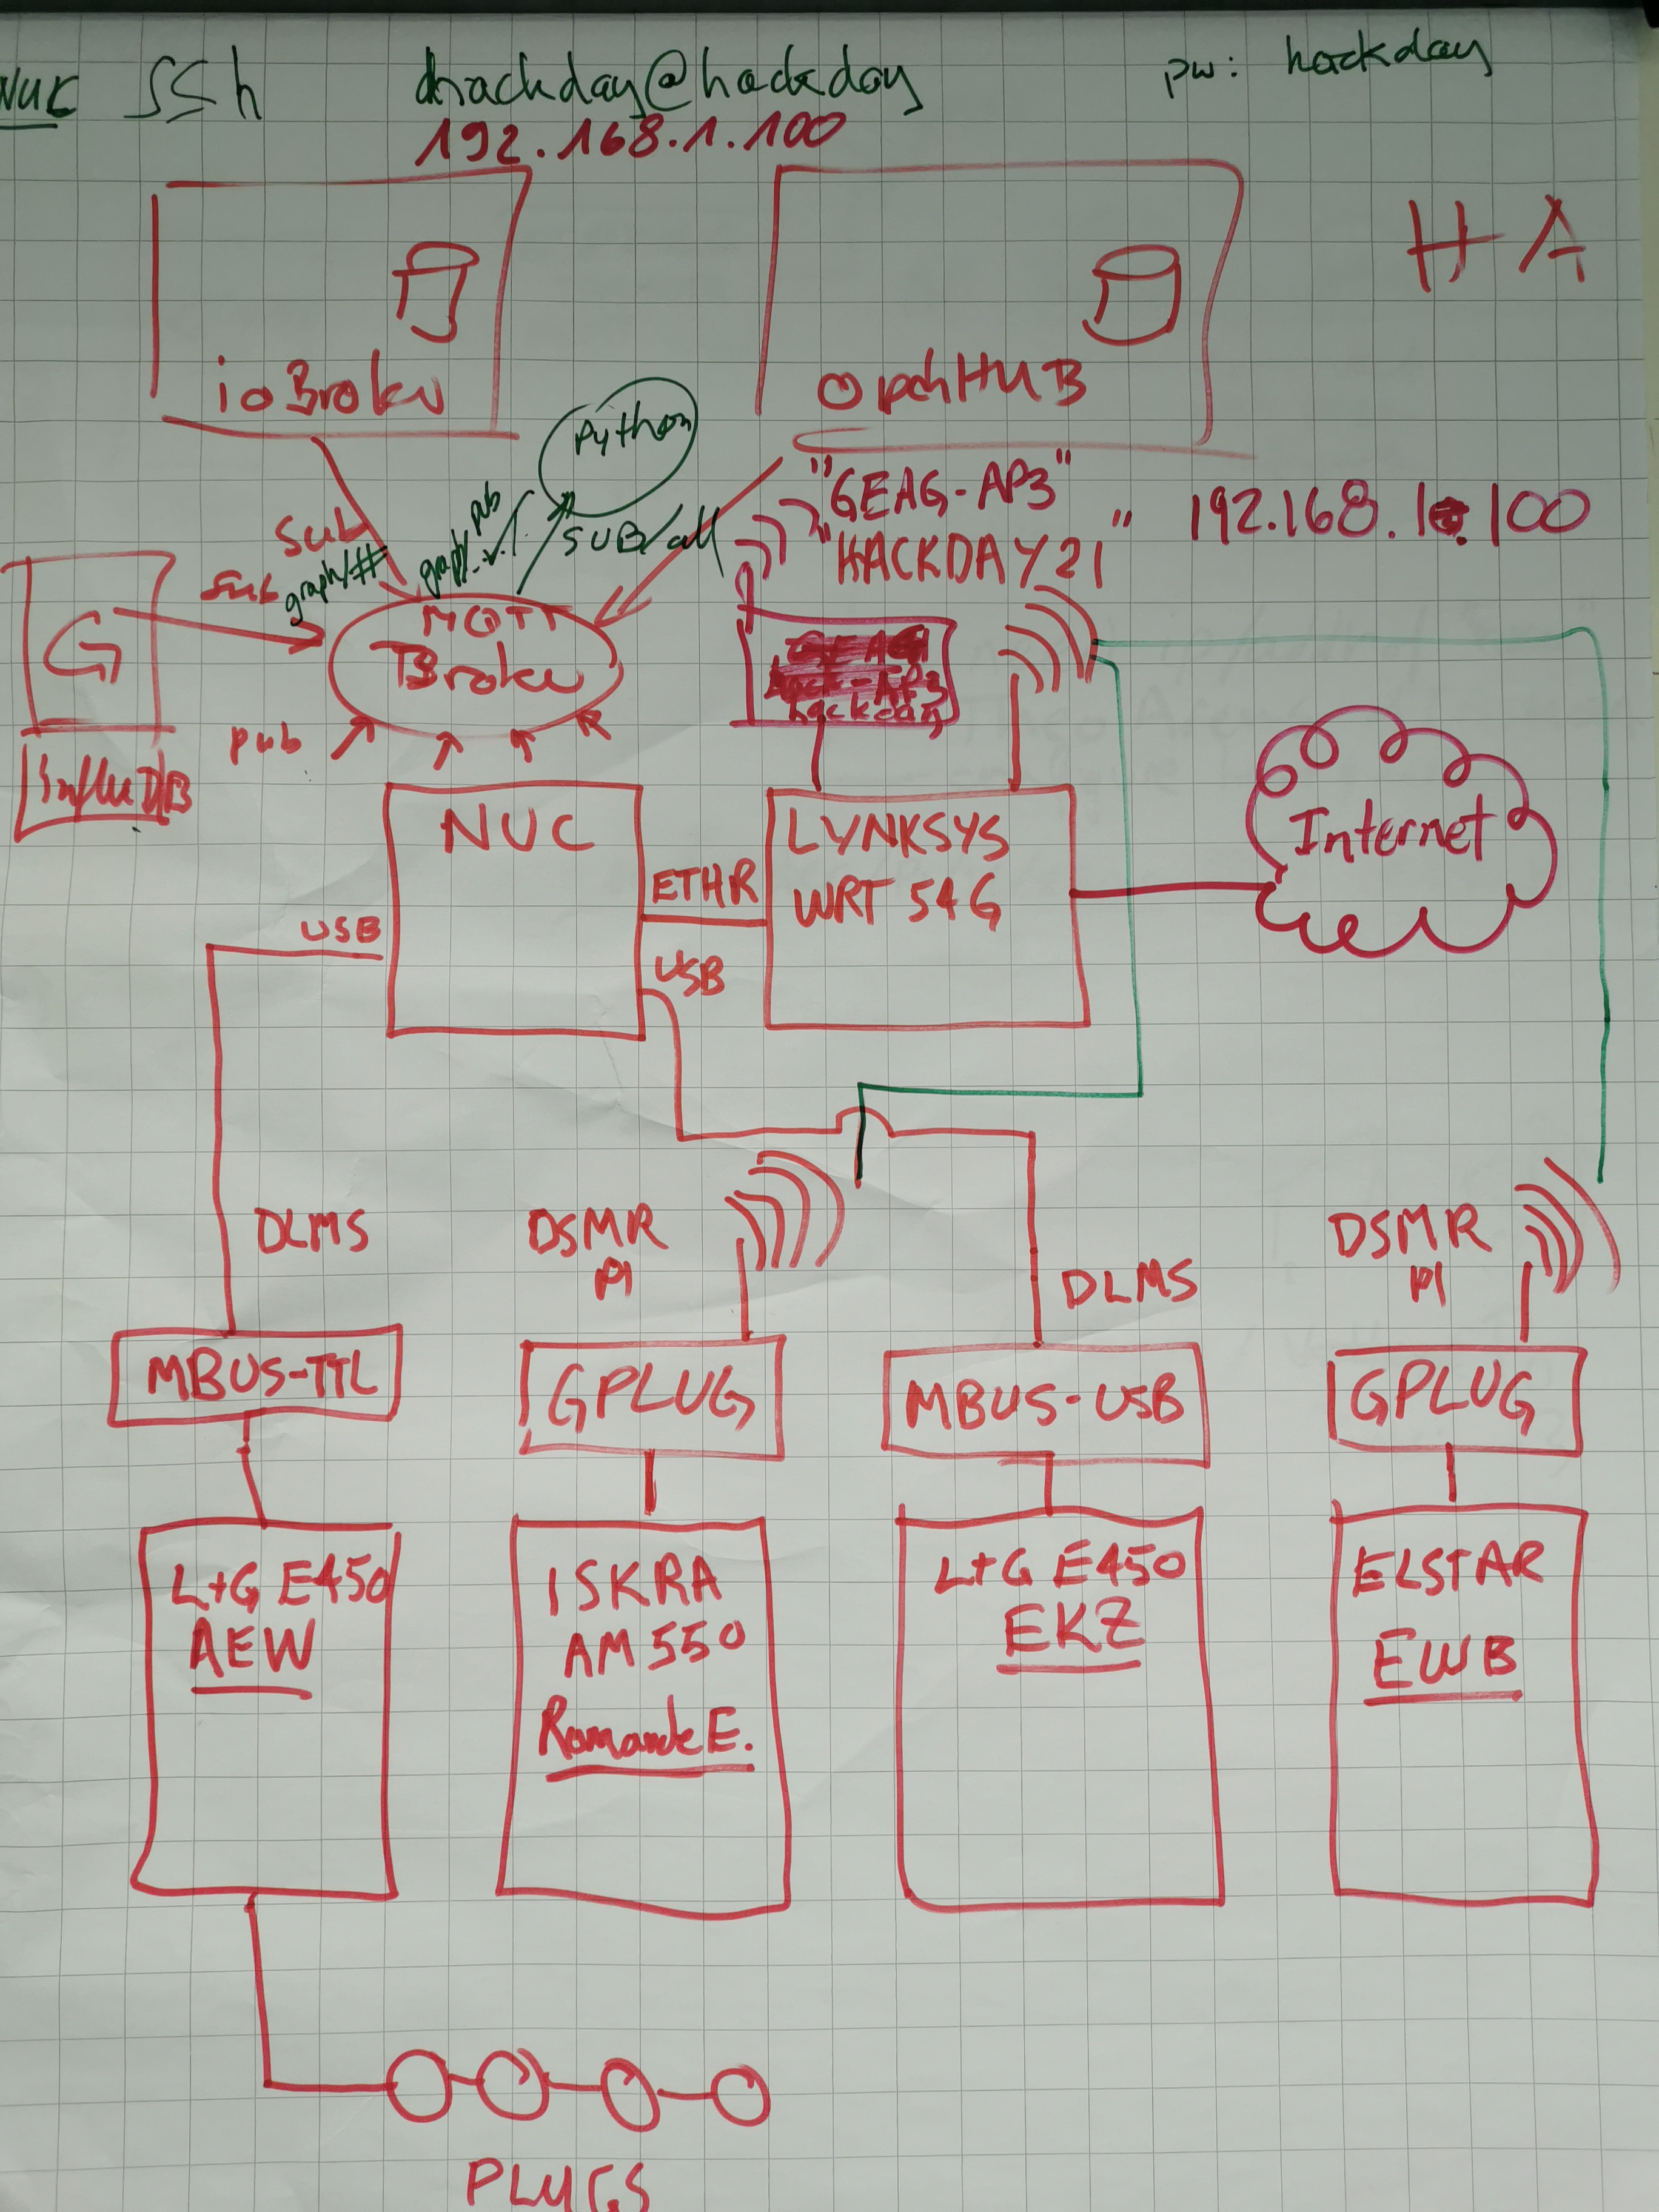 NUC SSh hackday@hackday pw: hackday
192.168.1.100
HA
ioBroker
OpenHUB
Python
"GEAG-AP3"
"HACKDAY21" 192.168.1.100
pub
graph
SUB/all
Sub
graph/#
Sub
G
InfluxDB
MQTT
Broker
pub
hackday
NUC
LYNKSYS
WRT 54G
ETHR
USB
USB
Internet
DLMS
DSMR
P1
DLMS
DSMR
P1
MBUS-TTL
GPLUG
MBUS-USB
GPLUG
L+G E450
AEW
ISKRA
AM550
Romande E.
L+G E450
EKZ
ELSTAR
EWB
PLUGS